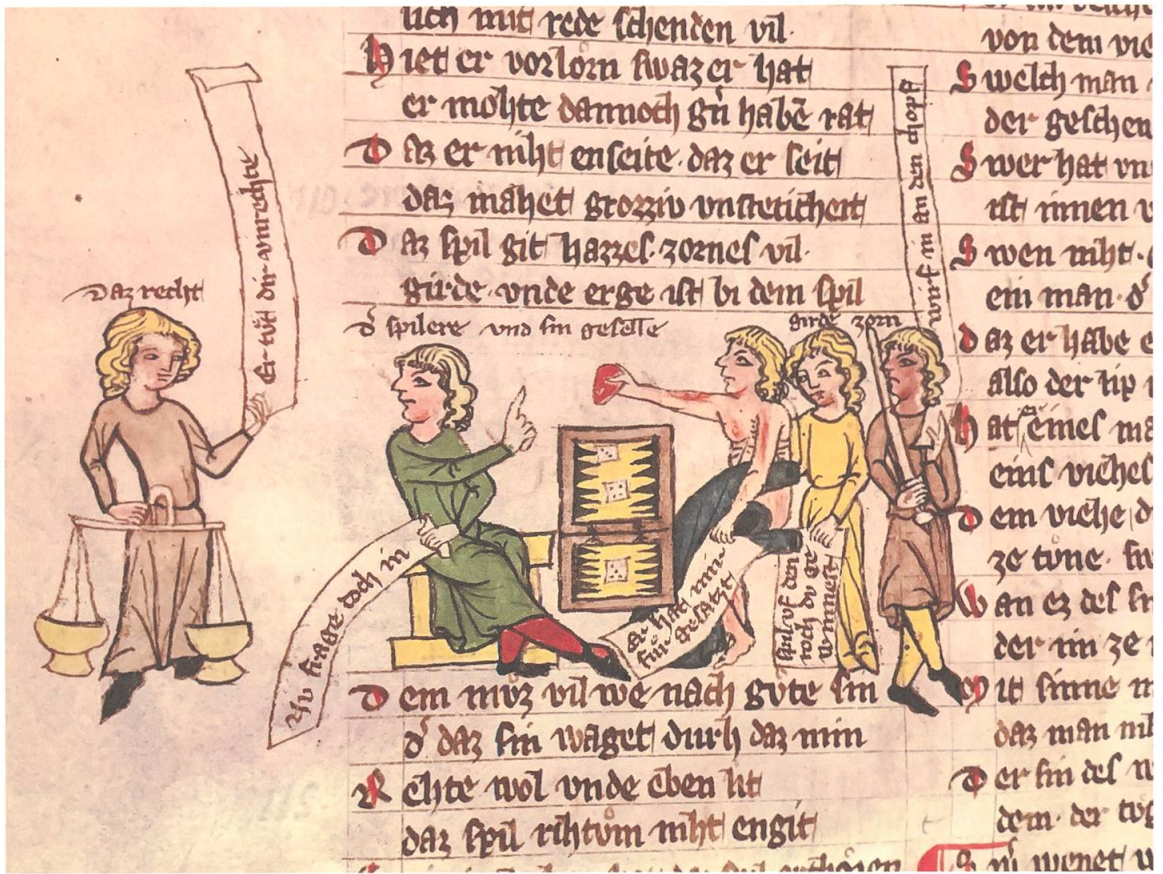 lich mit rede schenden vil·
Niet er vorlorn swaz er hat
er mohte dannoch gůt habē rat
Daz er niht enseite· daz er seit
daz mahet grozziv vnsteticheit
Daz spil git hazzes· zornes vil·
girde· vnde erge ist bi dem spil
Daz recht
Er tůt dir vnrechte
d' spilere vnd sin geselle
girde zorn
wirf in an den chopf
Nv frage doch in
er hat min
sin gesatzt
spil vf den
roch dv ge
winnest
Dem mvz vil we nach gvte sin
d' daz sin waget durh daz min
Rehte wol vnde eben lit
daz spil rihtům niht engit
von dem
Swelch man
der geschen
Swer hat
ist innen
Swen niht·
ein man· d'
daz er habe
also der lip
hat eines
eins viehes
dem viehe
ze tvne·
wan ez des
der im ze
mit sinne
daz man
der sin des
dem· der
wenet